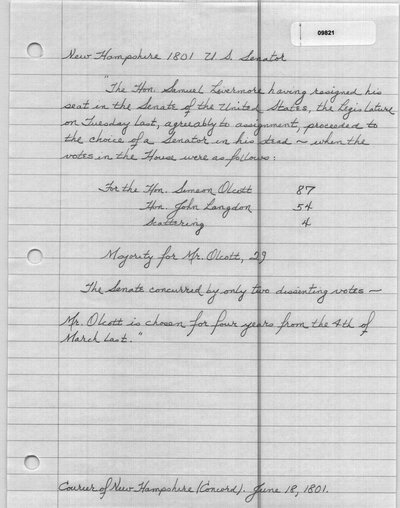 09821
New Hampshire 1801 U.S. Senator
"The Hon. Samuel Livermore having resigned his
seat in the Senate of the United States, the Legislature
on Tuesday last, agreuably to assignment, proceeded to
the choice of a Senator in his stead ~ when the
votes in the House were as follows:
For the Hon. Simeon Olcott 87
Hon. John Langdon 54
Scattering 4
Majority for Mr. Olcott, 29
The Senate concurred by only two dissenting votes ~
Mr. Olcott is chosen for four years from the 4th of
March last."
Courier of New Hampshire (Concord). June 18, 1801.